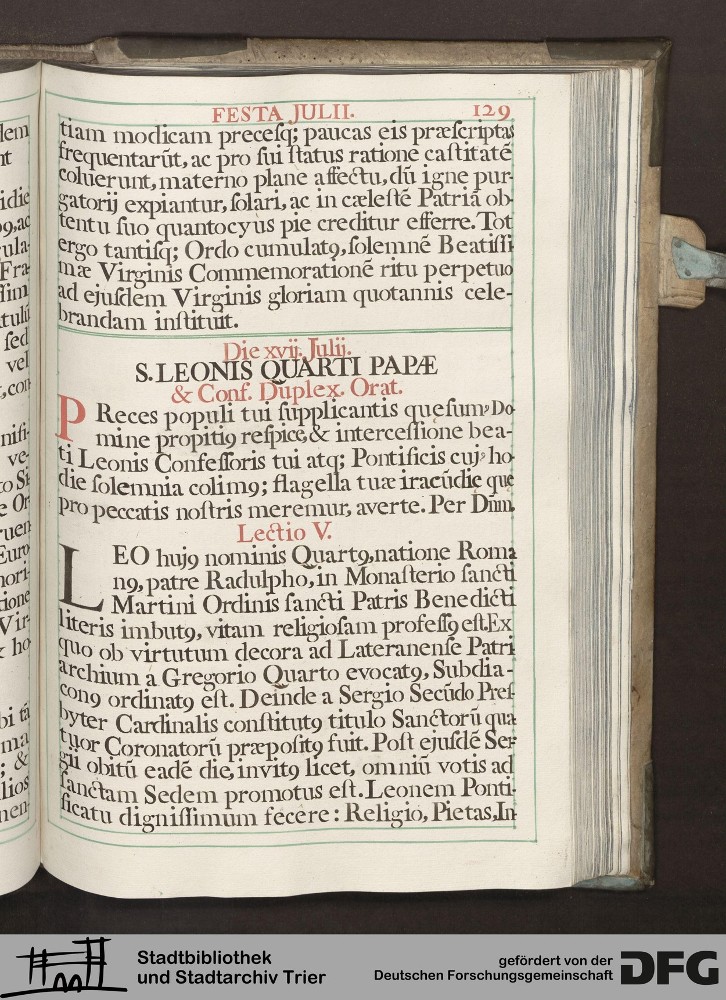 FESTA JULII. 129
tiam modicam precesq; paucas eis præscriptas
frequentarūt, ac pro sui status ratione castitatē
coluerunt, materno plane affectu, dū igne pur-
gatorij expiantur, solari, ac in cælestē Patriā ob-
tentu suo quantocyus pie creditur efferre. Tot
ergo tantisq; Ordo cumulatꝯ, solemnē Beatissi-
mæ Virginis Commemorationē ritu perpetuo
ad ejusdem Virginis gloriam quotannis cele-
brandam instituit.
Die xvij. Julij.
S. LEONIS QUARTI PAPÆ
& Conf. Duplex. Orat.
PReces populi tui supplicantis quesumꝯ Do
mine propitiꝯ respice, & intercessione bea-
ti Leonis Confessoris tui atq; Pontificis cujꝯ ho
die solemnia colimꝯ; flagella tuæ iracūdie que
pro peccatis nostris meremur, averte. Per Dnm.
Lectio V.
LEO hujꝯ nominis Quartꝯ, natione Roma
nꝯ, patre Radulpho, in Monasterio sancti
Martini Ordinis sancti Patris Benedicti
literis imbutꝯ, vitam religiosam professꝯ est. Ex
quo ob virtutum decora ad Lateranense Patri
archium a Gregorio Quarto evocatꝯ, Subdia-
conꝯ ordinatꝯ est. Deinde a Sergio Secūdo Pres-
byter Cardinalis constitutꝯ titulo Sanctorū qua
tuor Coronatorū præpositꝯ fuit. Post ejusdē Ser-
gii obitū eadē die, invitꝯ licet, omniū votis ad
sanctam Sedem promotus est. Leonem Ponti-
ficatu dignissimum fecere: Religio, Pietas, In-
Stadtbibliothek
und Stadtarchiv Trier
gefördert von der
Deutschen Forschungsgemeinschaft
DFG